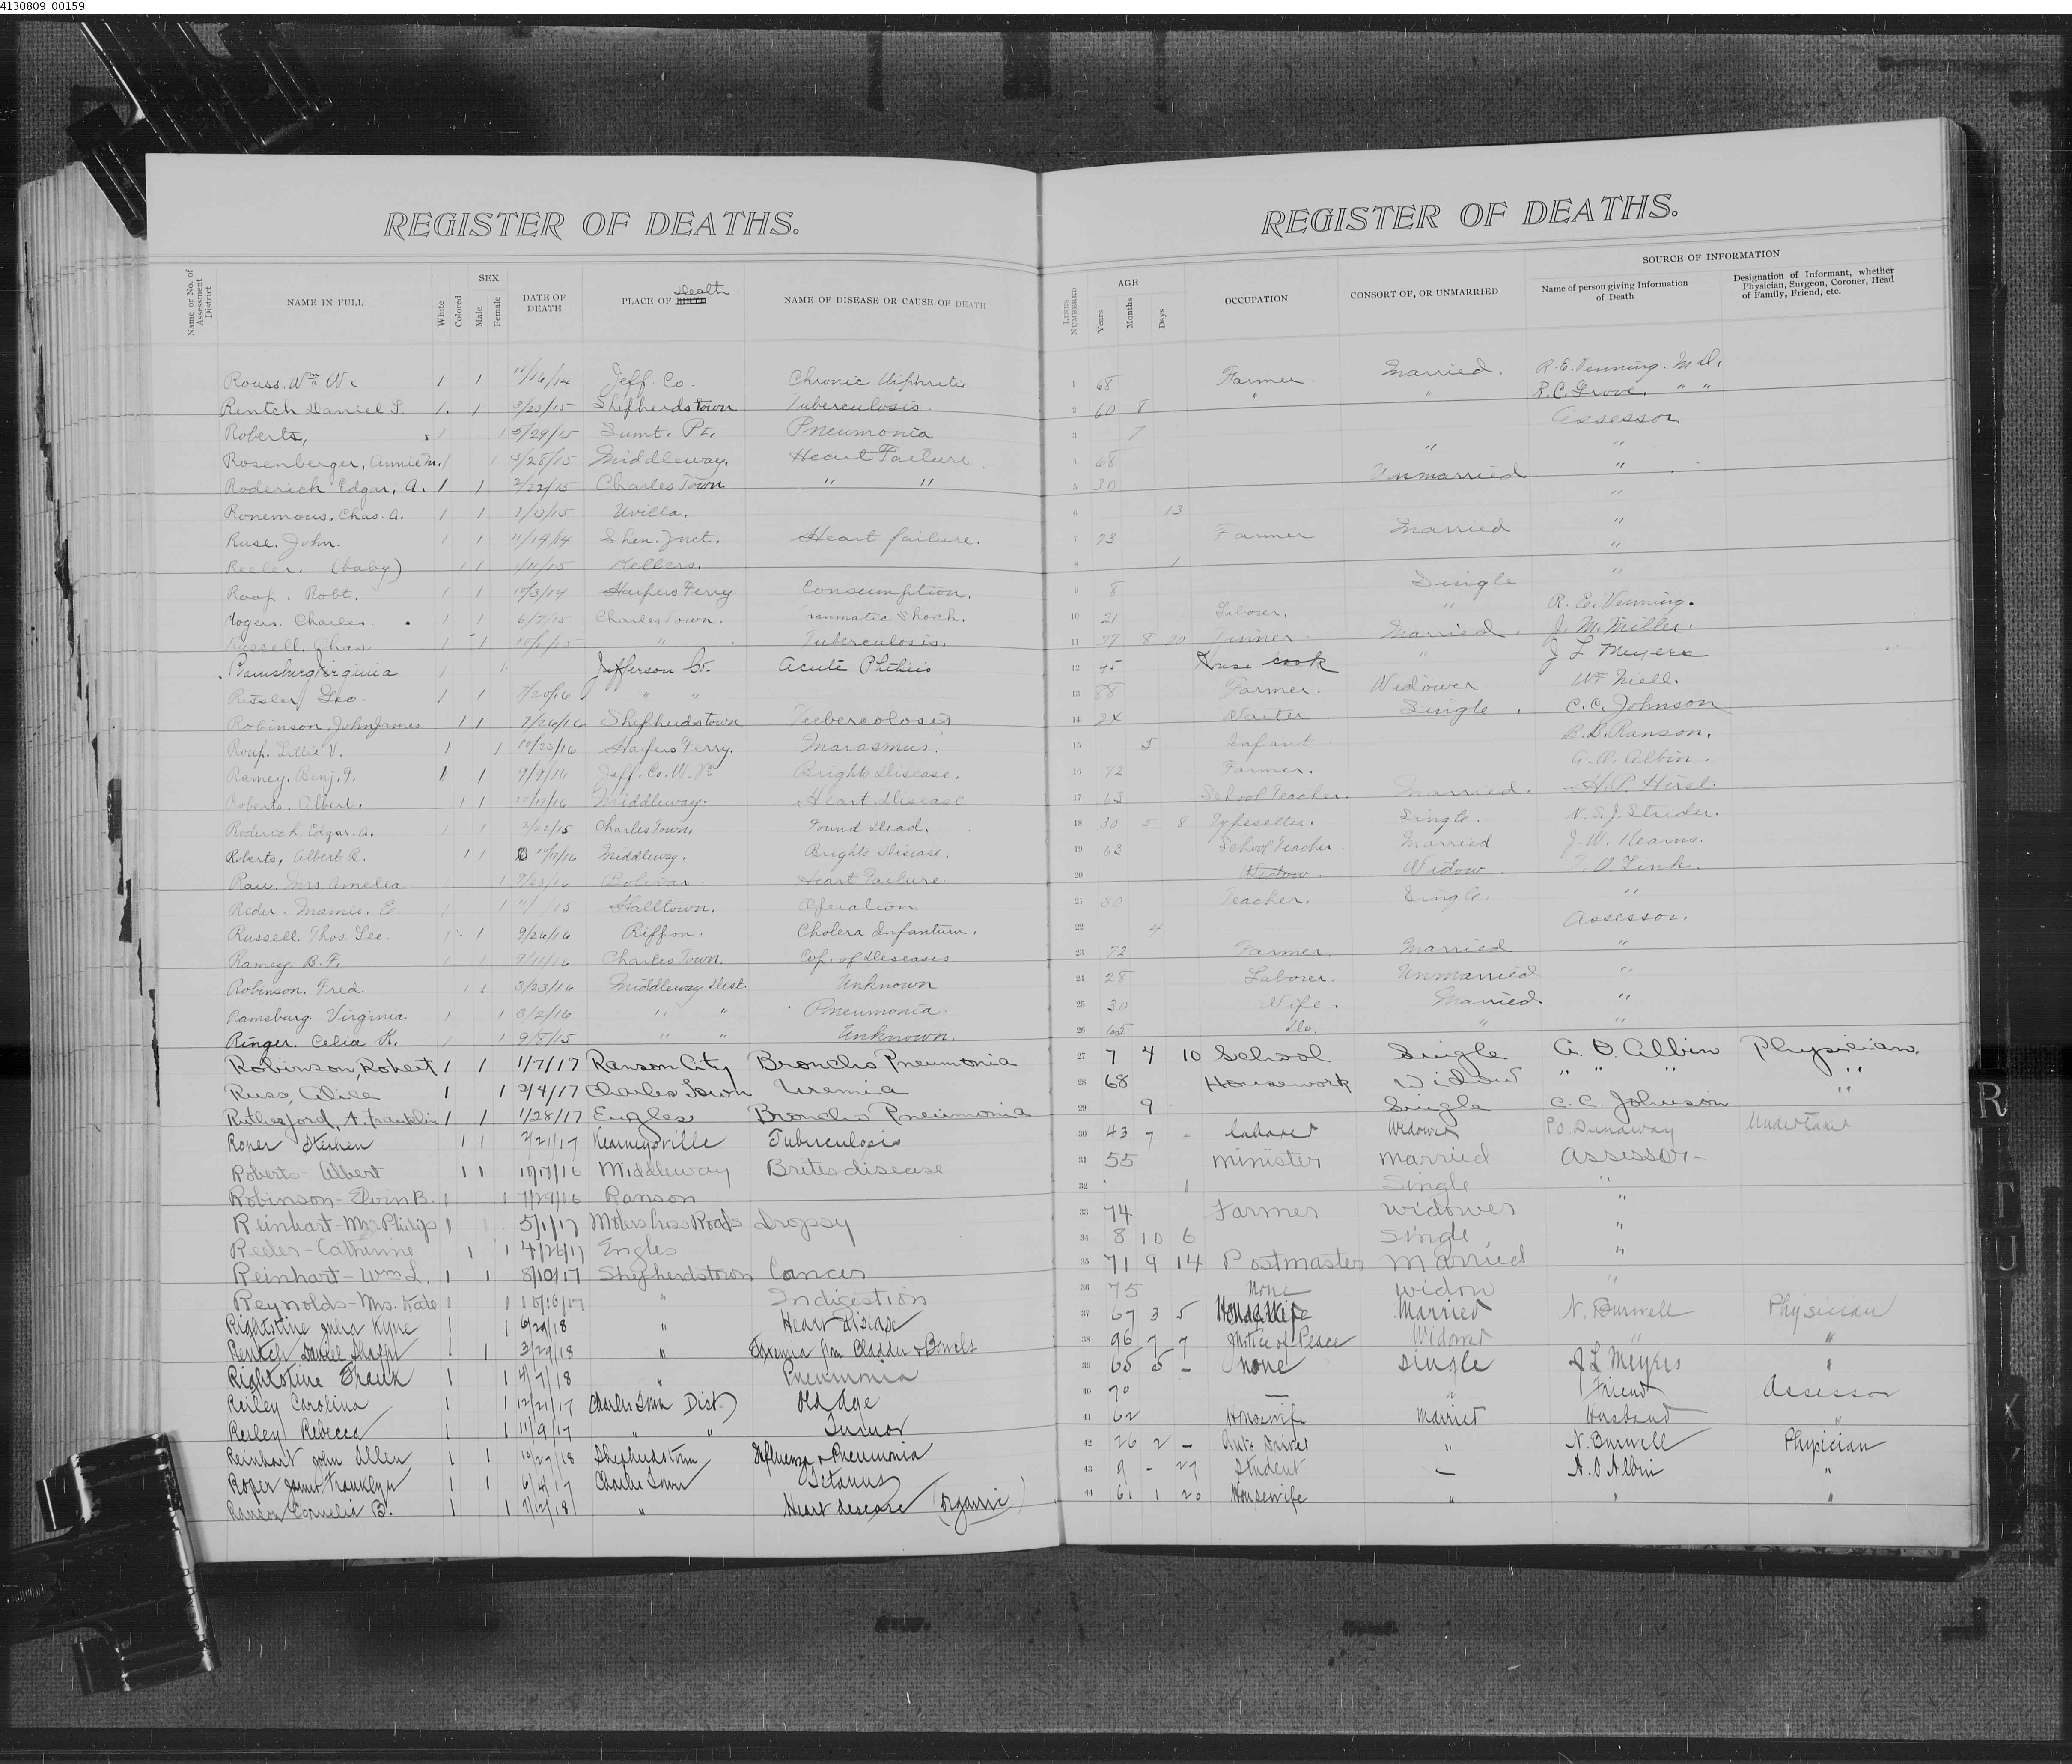 4130809_00159
REGISTER OF DEATHS.
Name or No. of Assessment District
NAME IN FULL
White
Colored
SEX
Male
Female
DATE OF DEATH
Death
PLACE OF BIRTH
NAME OF DISEASE OR CAUSE OF DEATH
Rouss. Wm W. 1 1 11/16/14 Jeff. Co. Chronic
Rentch Daniel S. 1. 1 3/23/15 Shepherdstown Tuberculosis.
Roberts, 1 1 5/29/15 Sumt. Pt. Pneumonia
Rosenberger, Annie M. 1 1 3/28/15 Middleway. Heart Failure
Roderick Edgar, A. 1 1 2/22/15 Charles Town " "
Ronemous, Chas. A. 1 1 1/13/15 Uvilla.
Ruse. John. 1 1 11/14/14 Shen. Junct. Heart failure.
Reeler. (baby) 1 1 1/11/15 Kellers.
Roop. Robt. 1 1 10/3/14 Harpers Ferry Consumption.
Rogers. Charles. 1 1 6/7/15 Charles Town. Traumatic Shock.
Russell. Chas. 1 1 10/1/15 " Tuberculosis.
Ramsburg Virginia 1 1 Jefferson Co. Acute Phthisis
Rissler, Geo. 1 1 7/20/16 " "
Robinson, John James. 1 1 7/26/16 Shepherdstown Tubercolosis
Roup. Lillie V. 1 1 10/23/16 Harpers Ferry. Marasmus.
Ramey, Benj. F. 1 1 9/9/16 Jeff. Co. W. Va Brights Disease.
Roberts. Albert. 1 1 10/17/16 Middleway. Heart Disease
Roderick. Edgar. A. 1 1 2/22/15 Charles Town. Found Dead.
Roberts, Albert R. 1 1 10/17/16 Middleway. Brights Disease.
Rau. Mrs Amelia 1 7/23/16 Bolivar Heart Failure.
Rider. Mamie. E. 1 1 11/ /15 Halltown. Operation
Russell. Thos. Lee. 1 1 9/26/16 Rippon. Cholera Infantum.
Ramey B. F. 1 1 9/11/16 Charles Town. Cop. of Deseases
Robinson. Fred. 1 1 3/23/16 Middleway Dist. Unknown
Ramsburg. Virginia. 1 1 8/2/16 " " Pneumonia.
Ringer. Celia K. 1 1 9/5/15 " " Unknown.
Robinson, Robert 1 1 1/7/17 Ranson City Broncho Pneumonia
Russ, Alice 1 1 2/4/17 Charles Town Uremia
Rutherford, A. Franklin 1 1 1/28/17 Engles Broncho Pneumonia
Roper 1 1 2/21/17 Kearneysville Tuberculosis
Roberts - Albert 1 1 10/17/16 Middleway Brites disease
Robinson - Elvin B. 1 1 7/29/16 Ranson
Reinhart - Mrs Philip 1 1 5/1/17 Molers Cross Roads Dropsy
Reeler - Catherine 1 1 4/26/17 Engles
Reinhart - Wm L. 1 1 8/10/17 Shepherdstown Cancer
Reynolds - Mrs. Kate 1 1 10/16/17 " Indigestion
Rightstine Julia Kyne 1 1 6/29/18 " Heart Disease
Rentch Daniel Shaffer 1 1 3/29/18 " from Bladder & Bowels
Rightstine Frank 1 1 4/7/18 " Pneumonia
Reiley Carolina 1 1 12/21/17 Charles Town Dist. Old Age
Reiley Rebecca 1 1 11/9/17 " " Tumor
Reinhart John Allen 1 1 10/27/18 Shepherdstown Influenza & Pneumonia
Roper James Franklyn 1 1 6/4/17 Charles Town Tetanus
Ranson Cornelia B. 1 7/12/18 " Heart disease (Organic)
REGISTER OF DEATHS.
LINES NUMBERED
AGE
Years
Months
Days
OCCUPATION
CONSORT OF, OR UNMARRIED
SOURCE OF INFORMATION
Name of person giving Information of Death
Designation of Informant, whether Physician, Surgeon, Coroner, Head of Family, Friend, etc.
1 68 Farmer. Married. R. E. Venning. M. D.
2 60 8 " " R. C. Grove. " "
3 7 Assessor
4 68 " "
5 30 Unmarried "
6 13 "
7 73 Farmer Married "
8 1 "
9 8 Single "
10 21 Laborer. " R. E. Venning.
11 37 8 20 Tinner. Married. J. M. Miller.
12 45 House cook " J L Meyers
13 88 Farmer. Widower Wm Neill.
14 24 Waiter Single. C. C. Johnson
15 5 Infant B. B. Ranson.
16 72 Farmer. A. O. Albin.
17 63 School Teacher. Married. H. P. Hirst.
18 30 5 8 Typesetter. Single. N. S. J. Strider.
19 63 School Teacher. Married J. W. Kearns.
20 Widow Widow. T. O. Link.
21 30 Teacher. Single. "
22 4 Assessor.
23 72 Farmer. Married "
24 28 Laborer. Unmarried "
25 30 Wife. Married. "
26 65 Do. " "
27 7 4 10 School Single A. O. Albin Physician.
28 68 Housework Widow " " " "
29 9 Single C. C. Johnson "
30 43 7 - Laborer Widower P O Dunaway Undertaker
31 55 Minister Married Assessor -
32 1 Single "
33 74 Farmer Widower "
34 8 10 6 Single "
35 71 9 14 Postmaster Married "
36 75 None Widow "
37 67 3 5 Housewife Married N. Burwell Physician
38 96 7 7 Justice of Peace Widower " "
39 65 5 - none Single J L Meyers "
40 70 — " Friend Assessor
41 62 Housewife Married Husband "
42 26 2 - Auto Driver " N. Burwell Physician
43 9 - 27 Student — A. O Albin "
44 61 1 20 Housewife " " "
R
T
U